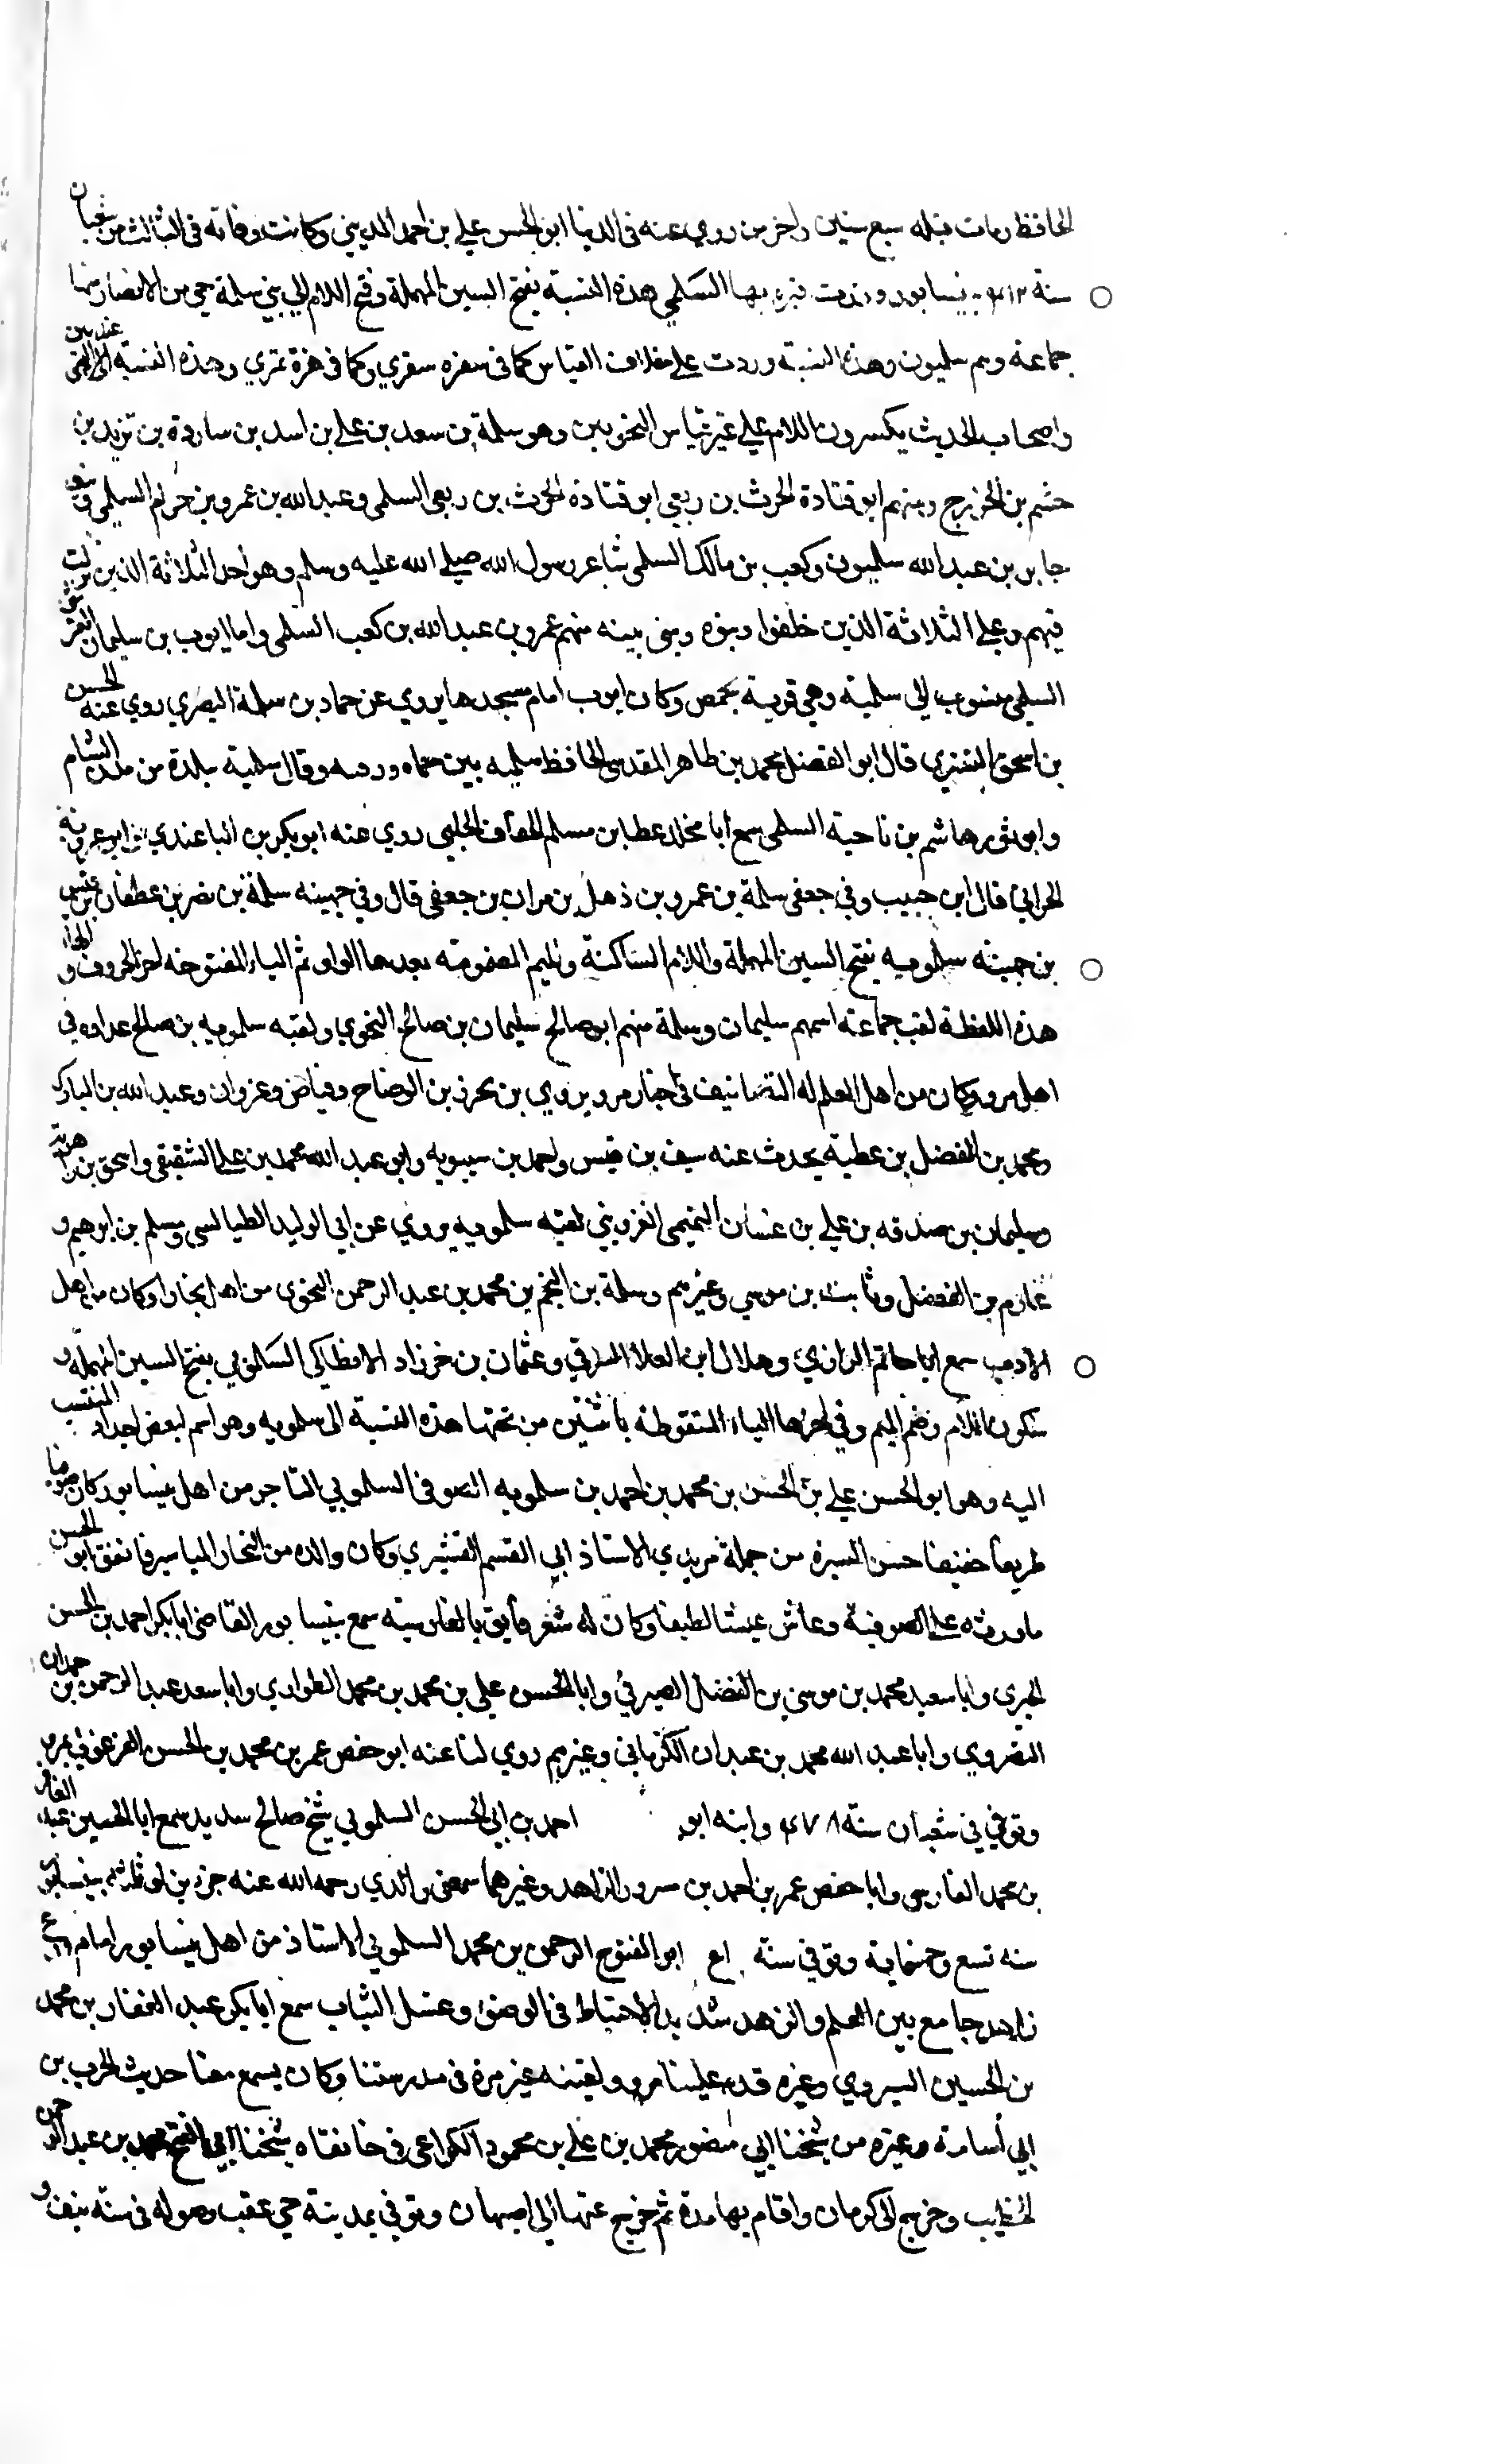 الحافظ ومات قبله سبع سنين واخر من روي عنه في الدنيا ابو الحسن علي بن احمد المديني وكانت وفاته في الثالث من شعبان
سنة ٤١٢ بنيسابور وزرت قبره بها السلمي هذه النسبة بفتح السين المهملة وفتح اللام الي بني سلمة حي من الانصار منها
جماعة وهم سلميون وهذه النسبة وردت علي خلاف القياس كما في سفره سفري وكما في نمرة نمري وهذه النسبة عند النحويين
واصحاب الحديث يكسرون اللام علي غير قياس النحويين وهو سلمة بن سعد بن علي بن اسد بن ساردة بن تزيد بن
جشم بن الخزرج ومنهم ابو قتادة الحرث بن ربعي ابو قتادة الحرث بن ربعي السلمي وعبد الله بن عمرو بن حرام السلمي و
جابر بن عبد الله سلميون وكعب بن مالك السلمي شاعر رسول الله صلي الله عليه وسلم وهو احد الثلاثة الذين نزلت
فيهم وعلي الثلاثة الذين خلفوا وبنوه وبني بنيه منهم عمرو بن عبد الله بن كعب السلمي واما ايوب بن سليمان
السلمي منسوب الي سلمية وهي قرية بحمص وكان ايوب امام مسجدها يروي عن حماد بن سلمة البصري روي عنه الحسن
بن اسحق التستري قال ابو الفضل محمد بن طاهر المقدسي الحافظ سلمية بين حماه و وقال سلمية بلدة من بلاد الشام
وابو ثور هاشم بن ناجية السلمي سمع ابا مخلد عطا بن مسلم الخفاف الحلبي روي عنه ابو بكر بن الباغندي وابو عروبة
الحراني قال ابن حبيب وفي جعفي سلمة بن عمرو بن ذهل بن مران بن جعفي قال وفي جهينه سلمة بن نصر بن غطفان بن قيس
بن جهينه سلمويه بفتح السين المهملة واللام الساكنة والميم المضمومة بعدها الواو ثم الياء المفتوحة اخر الحروف و
هذه اللفظة لقب جماعة اسمهم سليمان وسلمة منهم ابو صالح سليمان بن صالح النحوي ولقبه سلمويه بن صالح عداده في
اهل مرو وكان من اهل العلم له التصانيف في اخبار مرو يروي بن بحر بن الوضاح وفياض وغزوان وعبد الله بن المبارك
ومحمد بن الفضل بن عطية يحدث عنه سيف بن قيس واحمد بن سيبويه وابو عبد الله محمد بن علي الشقيقي واسحق بن راهويه
وسليمان بن صدقه بن علي بن غسان التميمي القزويني لقبه سلمويه يروي عن ابي الوليد الطيالسي ومسلم بن ابرهيم و
عارم بن الفضل وثابت بن موسي وغيرهم وسلمة بن النجم بن محمد بن عبد الرحمن النحوي من اهل بخارا وكان من اهل
الادب سمع ابا حاتم الرازي وهلال ابن العلا الرقي وعثمان بن خرزاد الانطاكي السلمويي بفتح السين المهملة و
سكون اللام وضم الميم وفي اخرها الياء المنقوطة باثنتين من تحتها هذه النسبة الى سلمويه وهو اسم لبعض اجداد المنتسب
اليه وهو ابو الحسن علي بن الحسن بن محمد بن احمد بن سلمويه الصوفي السلمويي التاجر من اهل نيسابور كان صوفيا
ظريفا خفيفا حسن السيرة من جملة مريدي الاستاذ ابي القسم القشيري وكان والده من التجار المياسير فانفق ابو الحسن
ما ورثه علي الصوفية وعاش عيشا لطيفا وكان له شعر فايق بالفارسية سمع بنيسابور القاضي ابا بكر احمد بن الحسن
الحيري وابا سعيد محمد بن موسي بن الفضل الصيرفي وابا الحسن علي بن محمد بن محمد الطوادي وابا سعد عبد الرحمن بن حمدان
النضروي وابا عبد الله محمد بن عبدان الكرماني وغيرهم روي لنا عنه ابو حفص عمر بن محمد بن الحسن الفرغولي بمرو
وتوفي في شعبان سنة ٤٧٨ وابنه ابو احمد بن ابي الحسن السلمويي شيخ صالح سديد سمع ابا الحسين عبد الغافر
بن محمد الفارسي وابا حفص عمر بن احمد بن مسرور الزاهد وغيرهما سمعني والدي رحمه الله عنه جزء بنيسابور
سنه تسع وخمسماية وتوفي سنة ابو الفتوح الرحمن بن محمد السلمويي الاستاذ من اهل نيسابور امام
زاهد جامع بين العلم والزهد شديد الاحتياط في الوضو وغسل الثياب سمع ابا بكر عبد الغفار بن محمد
بن الحسين السيروي وغيره قدم علينا مرو ولقيته غير مرة في مدرستنا وكان يسمع معنا حديث الحرث بن
ابي أسامة وغيره من شيخنا ابي منصور محمد بن علي بن محمود الكراعي في خانقاه شيخنا ابي الفتح محمد بن عبد الرحمن
الخطيب وخرج الى كرمان واقام بها مدة ثم خرج عنها الي اصبهان وتوفي بمدينة جي عقيب وصوله في سنة نيف و